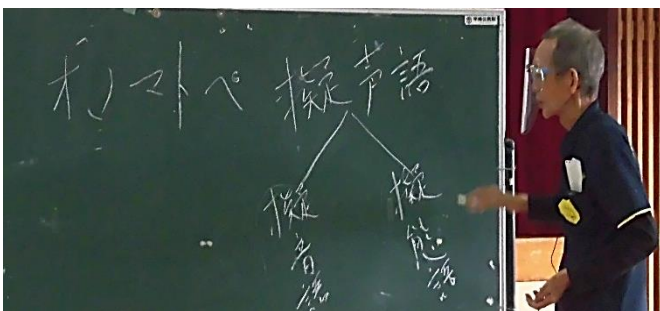 オノマトペ 擬音語
擬音語
擬態語